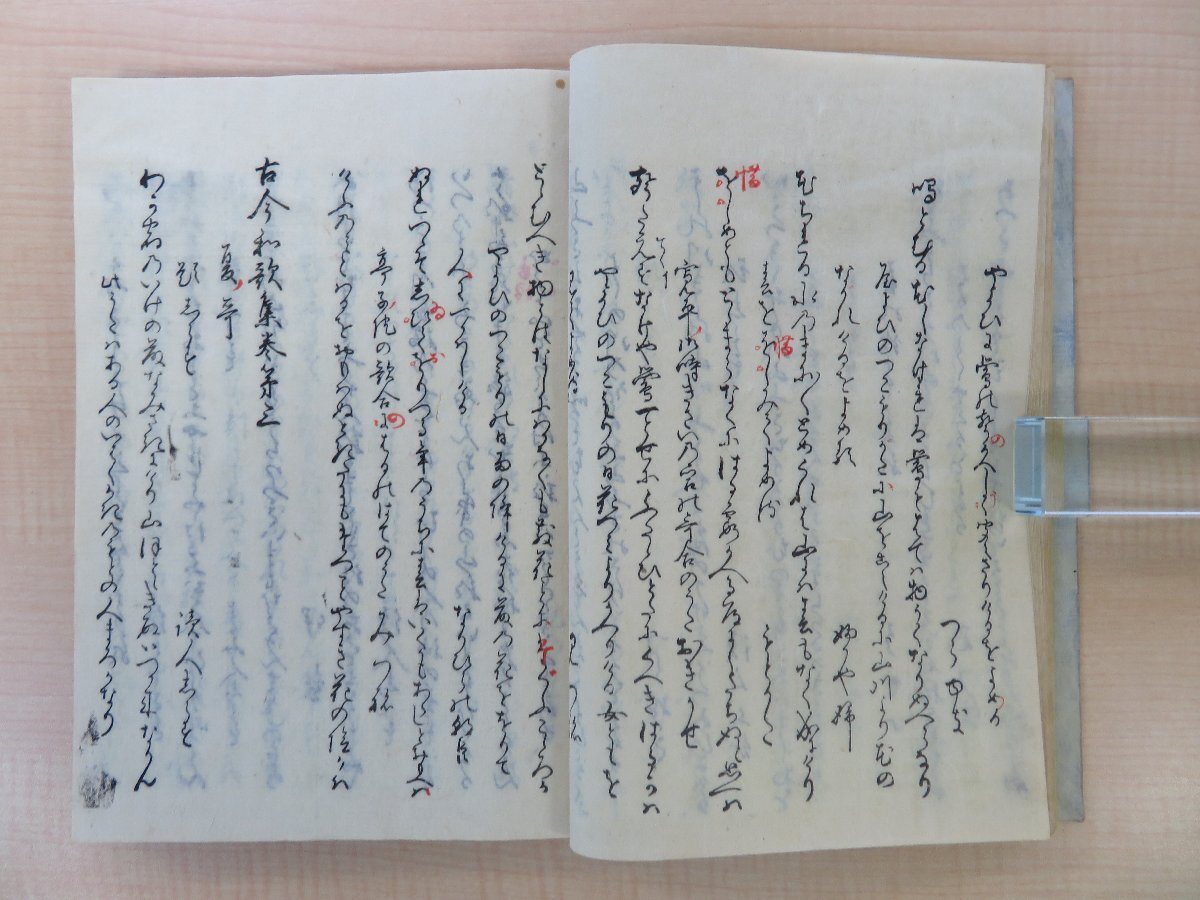 やよひに鶯のこゑのひさしくきこえさりけるをよめる
つらゆき
鳴とむる花しなけれは鶯もはては物うくなりぬへらなり
やよひのつこもりかたに山をこえけるに山川より花の
なかれけるをよめる
ふかやふ
花ちれる水のまに〱とめくれは山には春もなく成にけり
春をおしみてよめる
もとかた
おしめともとゝまらなくに春霞かへる道にしたちぬと思へは
寛平御時きさいの宮の哥合のうた おきかせ
声たえすなけや鶯一とせにふたゝひとたにくへき春かは
やよひのつこもりの日花つみよりかへりける女ともを
とゝむへき物とはなしにはかなくもちる花ことにたくふこゝろか
やよひのつこもりの日雨の降けるに藤の花をおりて
人につかはしける なりひらの朝臣
ぬれつゝそしゐておりつる年の内に春はいくかもあらしと思へは
亭子院の歌合に春のはてのうた みつね
けふのみと春をおもはぬ時たにもたつことやすき花の陰かは
古今和歌集巻第三
夏哥
題しらす 読人しらす
わかやとのいけの藤なみさきにけり山ほとゝきすいつか来なかん
此うたはある人のいはくかきのもとの人まろかなり